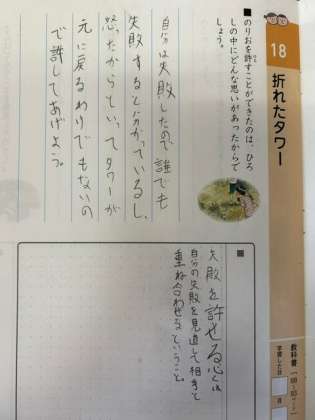 18
折れたタワー
教科書
学習した日
月
■のりおを許すことができたのは、ひろ
しの中にどんな思いがあったからで
しょう。
自分は失敗したので誰でも
失敗すると分かっているし、
怒ったからといってタワーが
元に戻るわりでもないの
で許してあげよう。
■
失敗を許せる心とは
自分の失敗を見直して相手と
重ね合わせるということ。